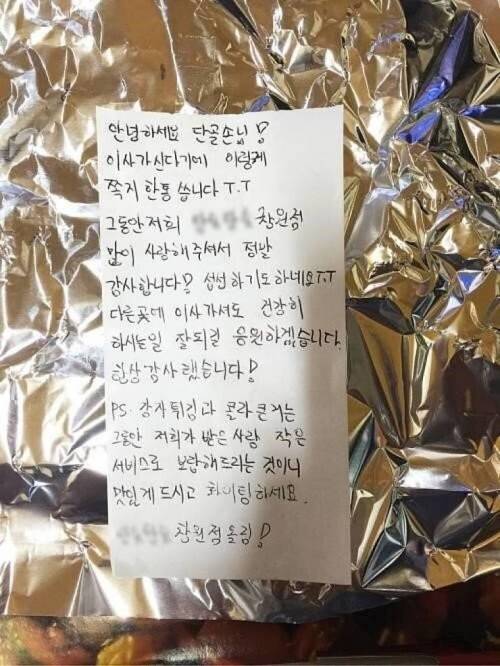 안녕하세요 단골손님!
이사가신다기에 이렇게
쪽지 한통 씁니다 T.T
그동안 저희 창원점
많이 사랑해주셔서 정말
감사합니다! 섭섭하기도하네요T.T
다른곳에 이사가셔도 건강히
하시는일 잘되길 응원하겠습니다.
항상 감사했습니다!
PS. 감자튀김과 콜라큰거는
그동안 저희가 받은 사랑 작은
서비스로 보답해드리는 것이니
맛있게 드시고 화이팅하세요.
창원점올림!